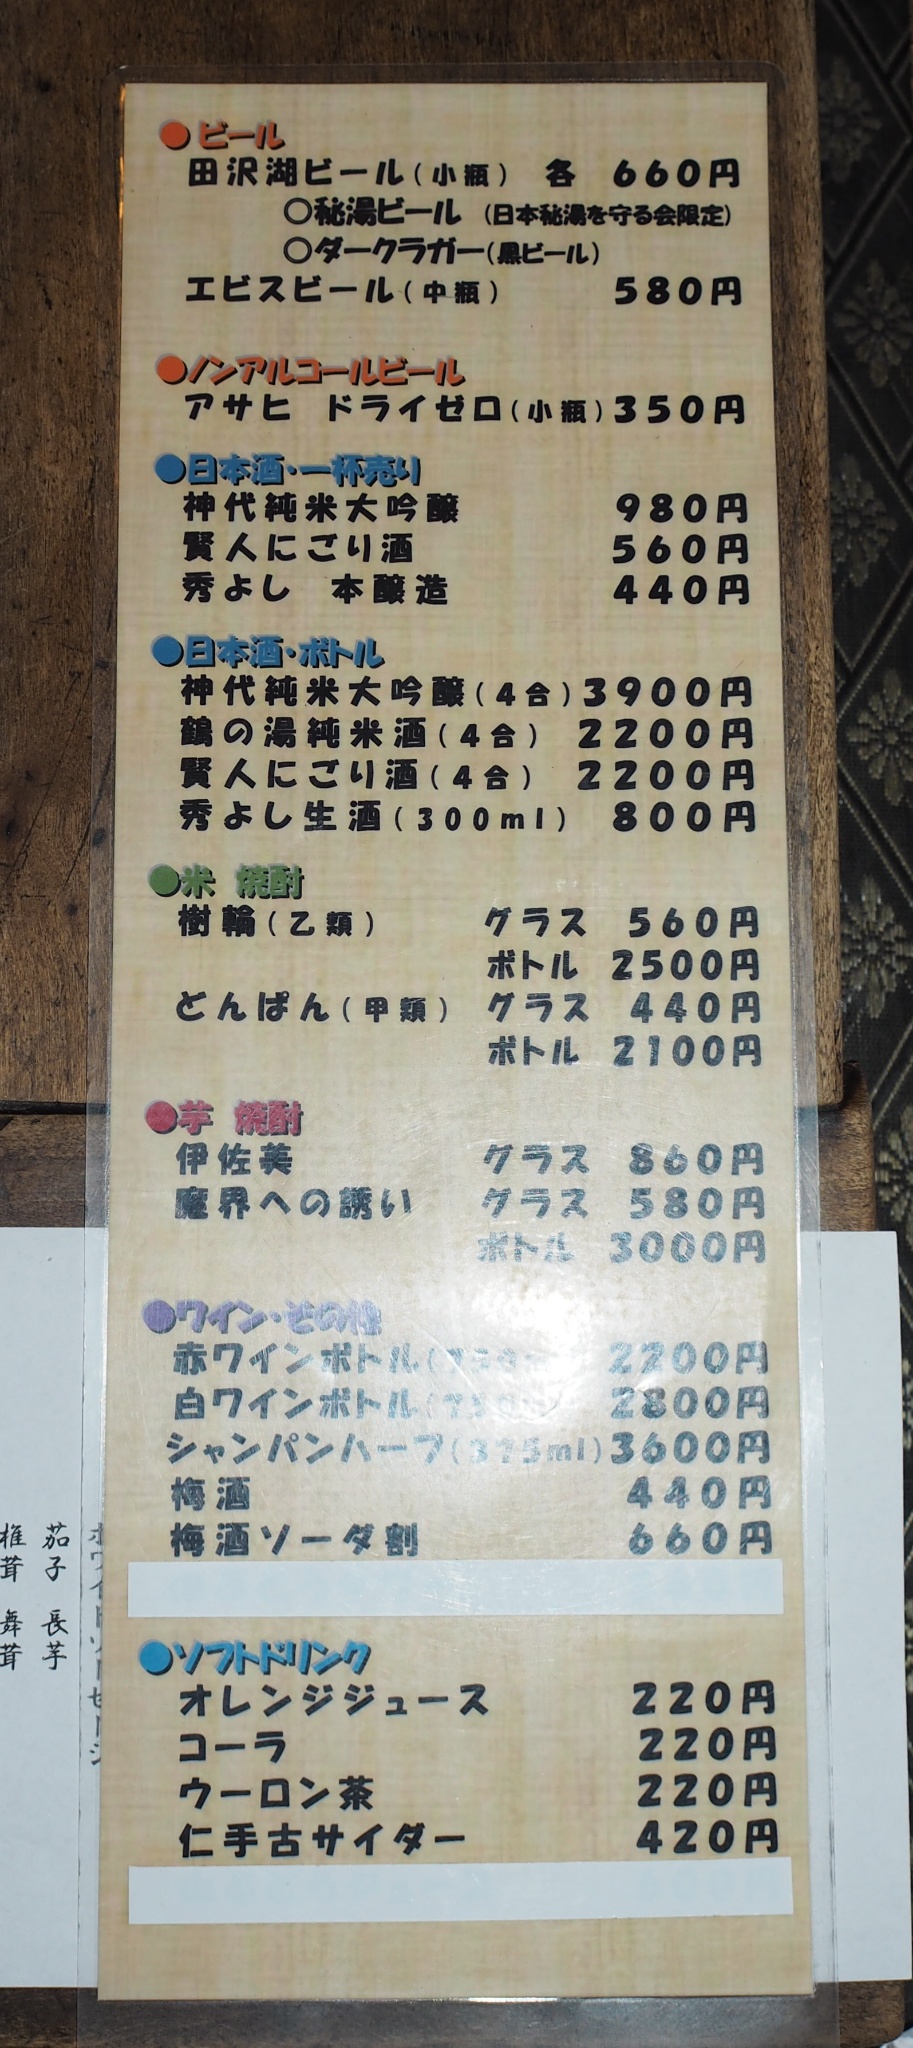 ●ビール
田沢湖ビール(小瓶) 各 660円
○秘湯ビール (日本秘湯を守る会限定)
○ダークラガー(黒ビール)
エビスビール(中瓶) 580円
●ノンアルコールビール
アサヒ ドライゼロ(小瓶)350円
●日本酒・一杯売り
神代純米大吟醸 980円
賢人にごり酒 560円
秀よし 本醸造 440円
●日本酒・ボトル
神代純米大吟醸(4合)3900円
鶴の湯純米酒(4合) 2200円
賢人にごり酒(4合) 2200円
秀よし生酒(300ml) 800円
●米 焼酎
樹輪(乙類) グラス 560円
ボトル 2500円
どんぱん(甲類) グラス 440円
ボトル 2100円
●芋 焼酎
伊佐美 グラス 860円
魔界への誘い グラス 580円
ボトル 3000円
●ワイン・その他
赤ワインボトル 2200円
白ワインボトル 2800円
シャンパンハーフ(375ml)3600円
梅酒 440円
梅酒ソーダ割 660円
●ソフトドリンク
オレンジジュース 220円
コーラ 220円
ウーロン茶 220円
仁手古サイダー 420円
茄子 長芋
椎茸 舞茸